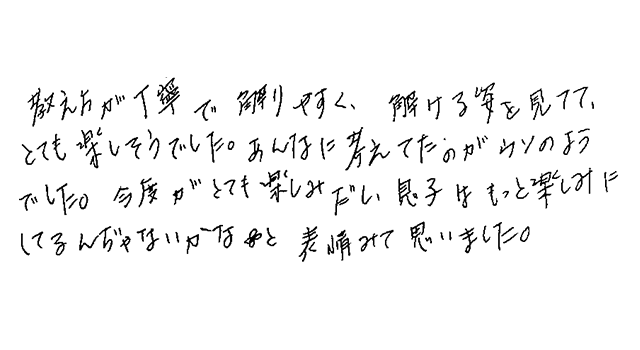 教え方が丁寧で解りやすく、解ける姿を見てて、
とても楽しそうでした。あんなに考えてたのがウソのよう
でした。今度がとても楽しみだし息子はもっと楽しみに
してるんぢゃないかなと表情みて思いました。